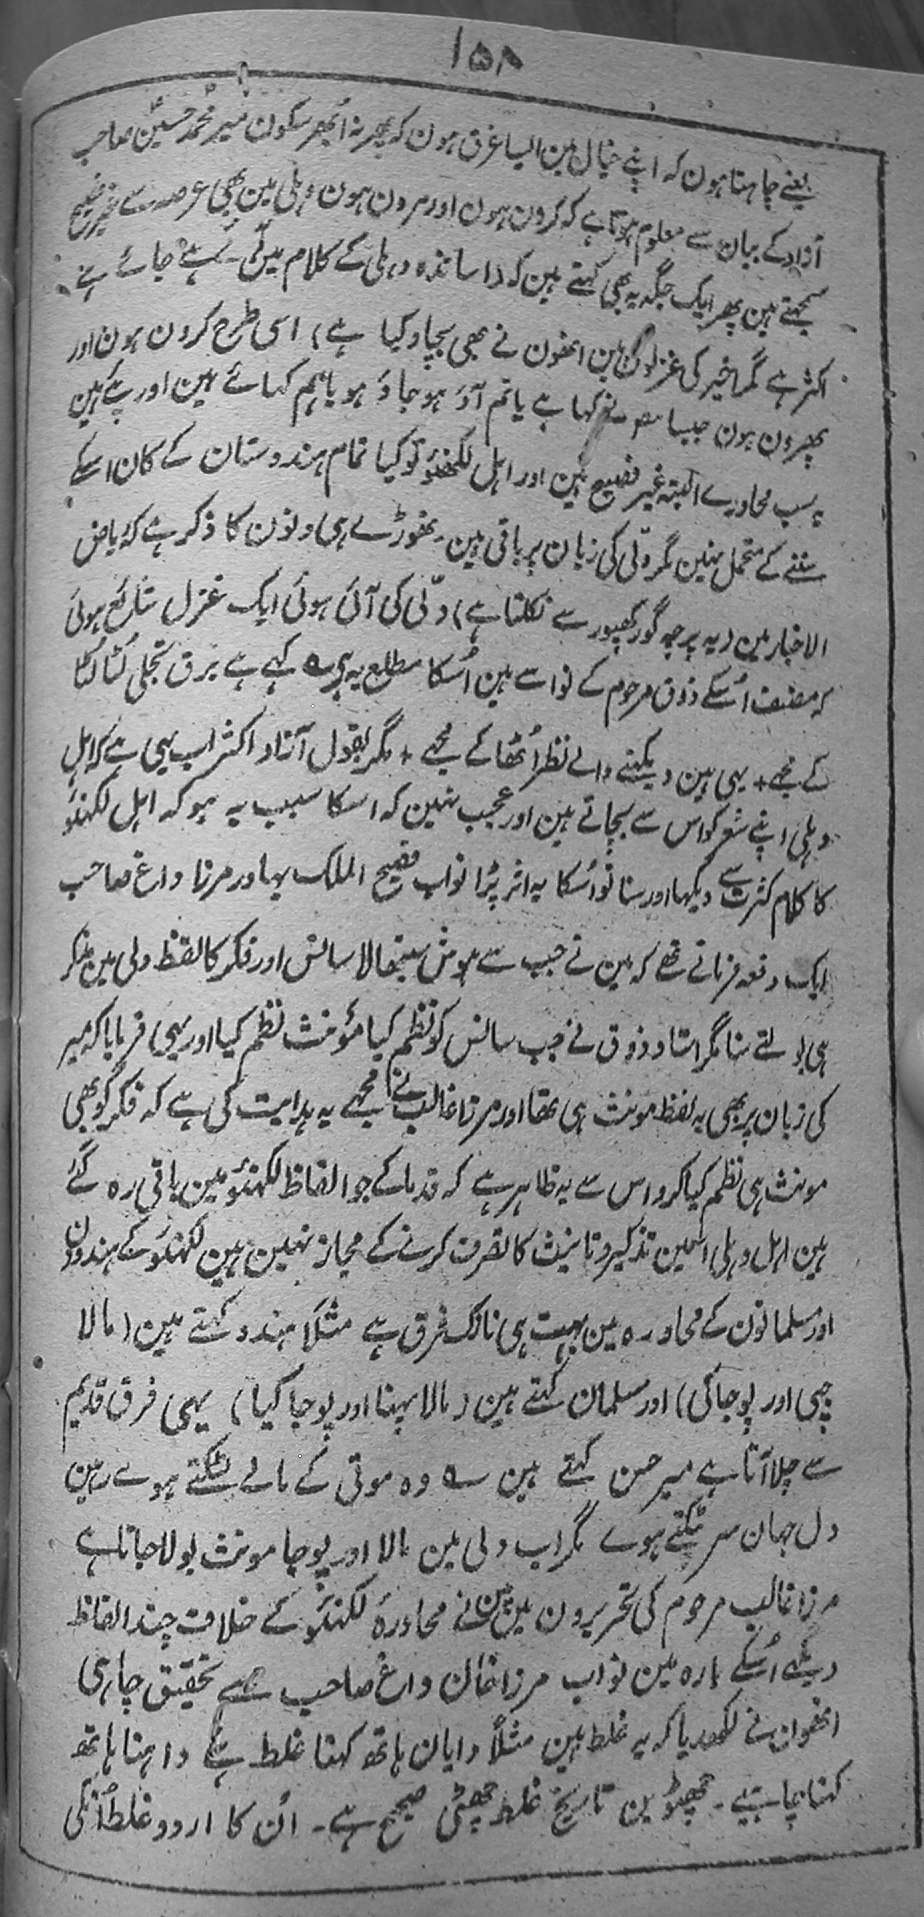 ۱۵۸
یعنے چاہتا ہون کہ اپنے خیال مین ایسا غرق ہون کہ پھر نہ ابھر سکون میر محمد حسین صاحب
آزاد کے بیان سے معلوم ہوتا ہے کہ کرون ہون اور مرون ہون دہلی مین بھی عرصہ سے غیر فصیح
سمجہتے ہین پھر ایک جگہ یہ بھی کہتے ہین کہ داساتذہ دہلی کے کلام مین آئے ہے جائے ہے
اکثر ہے مگر اخیر کی غزلون مین انھون نے بھی بچاو کیا ہے) اسی طرح کرون ہون اور
پھرون ہون جیسا کہا ہے یا تم آؤ ہو جاؤ ہو یا ہم کہائے ہین اور پئے ہین
یہ سب محاورے البتہ غیر فصیح ہین اور اہل لکھنؤ تو کیا تمام ہندوستان کے کان اسکے
سننے کے متحمل نہین مگر دلّی کی زبان پر باقی ہین ۔ تھوڑے ہی دنون کا ذکر ہے کہ ریاض
الاخبار مین (یہ پرچہ گورکھپور سے نکلتا ہے) دلّی کی آئی ہوئی ایک غزل شائع ہوئی
کہ مصنف اُسکے ذوق مرحوم کے نواسے ہین اُسکا مطلع یہ ہے ؎ کہے ہے برق تجلی لُٹا لُٹا
کے مجھے + یہی ہین دیکہنے والے نظر اُٹھا کے مجھے + مگر بقول آزاد اکثر اب یہی ہے کہ اہل
دہلی اپنے شعر کو اس سے بچاتے ہین اور عجب نہین کہ اسکا سبب یہ ہو کہ اہل لکہنؤ
کا کلام کثرت سے دیکہا اور سنا تو اُسکا یہ اثر پڑا نواب فصیح الملک بہادر مرزا داغ صاحب
ایک دفعہ فرماتے تھے کہ مین نے جب سے ہوش سنبھالا سانس اور فکر کا لفظ دلی مین مذکر
ہی بولتے سنا مگر استاد ذوق نے جب سانس کو نظم کیا مؤنث نظم کیا اور یہی فرمایا کہ میر
کی زبان پر بھی یہ لفظ مونث ہی تھا اور مرزا غالب نے مجھے یہ ہدایت کی ہے کہ فکر کو بھی
مونث ہی نظم کیا کرو اس سے یہ ظاہر ہے کہ قدما کے جو الفاظ لکہنؤ مین باقی رہ گئے
ہین اہل دہلی انمین تذکیر و تانیث کا تصرف کرنے کے مجاز نہین ہین لکہنؤ کے ہندوون
اور مسلمانون کے محاورہ مین بہت ہی نازک فرق ہے مثلًا ہندو کہتے ہین (مالا
جپی اور پوجا کی) اور مسلمان کہتے ہین (مالا پہنا اور پوجا کیا) یہی فرق قدیم
سے چلا آتا ہے میر حسن کہتے ہین ؎ وہ موتی کے مالے لٹکتے ہوے رہین
دل جہان سر پٹکتے ہوے مگر اب دلی مین مالا اور پوجا مونث بولا جاتا ہے
مرزا غالب مرحوم کی تحریرون مین مین نے محاورۂ لکہنؤ کے خلاف چند الفاظ
دیکہے اُسکے بارہ مین نواب مرزا خان داغ صاحب سے تحقیق چاہی
انھون نے لکھدیا کہ یہ غلط ہین مثلاً دایان ہاتھ کہنا غلط ہے داہنا ہاتھ
کہنا چاہئیے ۔ چھٹوین تاریخ غلط چھٹی صحیح ہے ۔ ان کا اردو غلط اُنکی